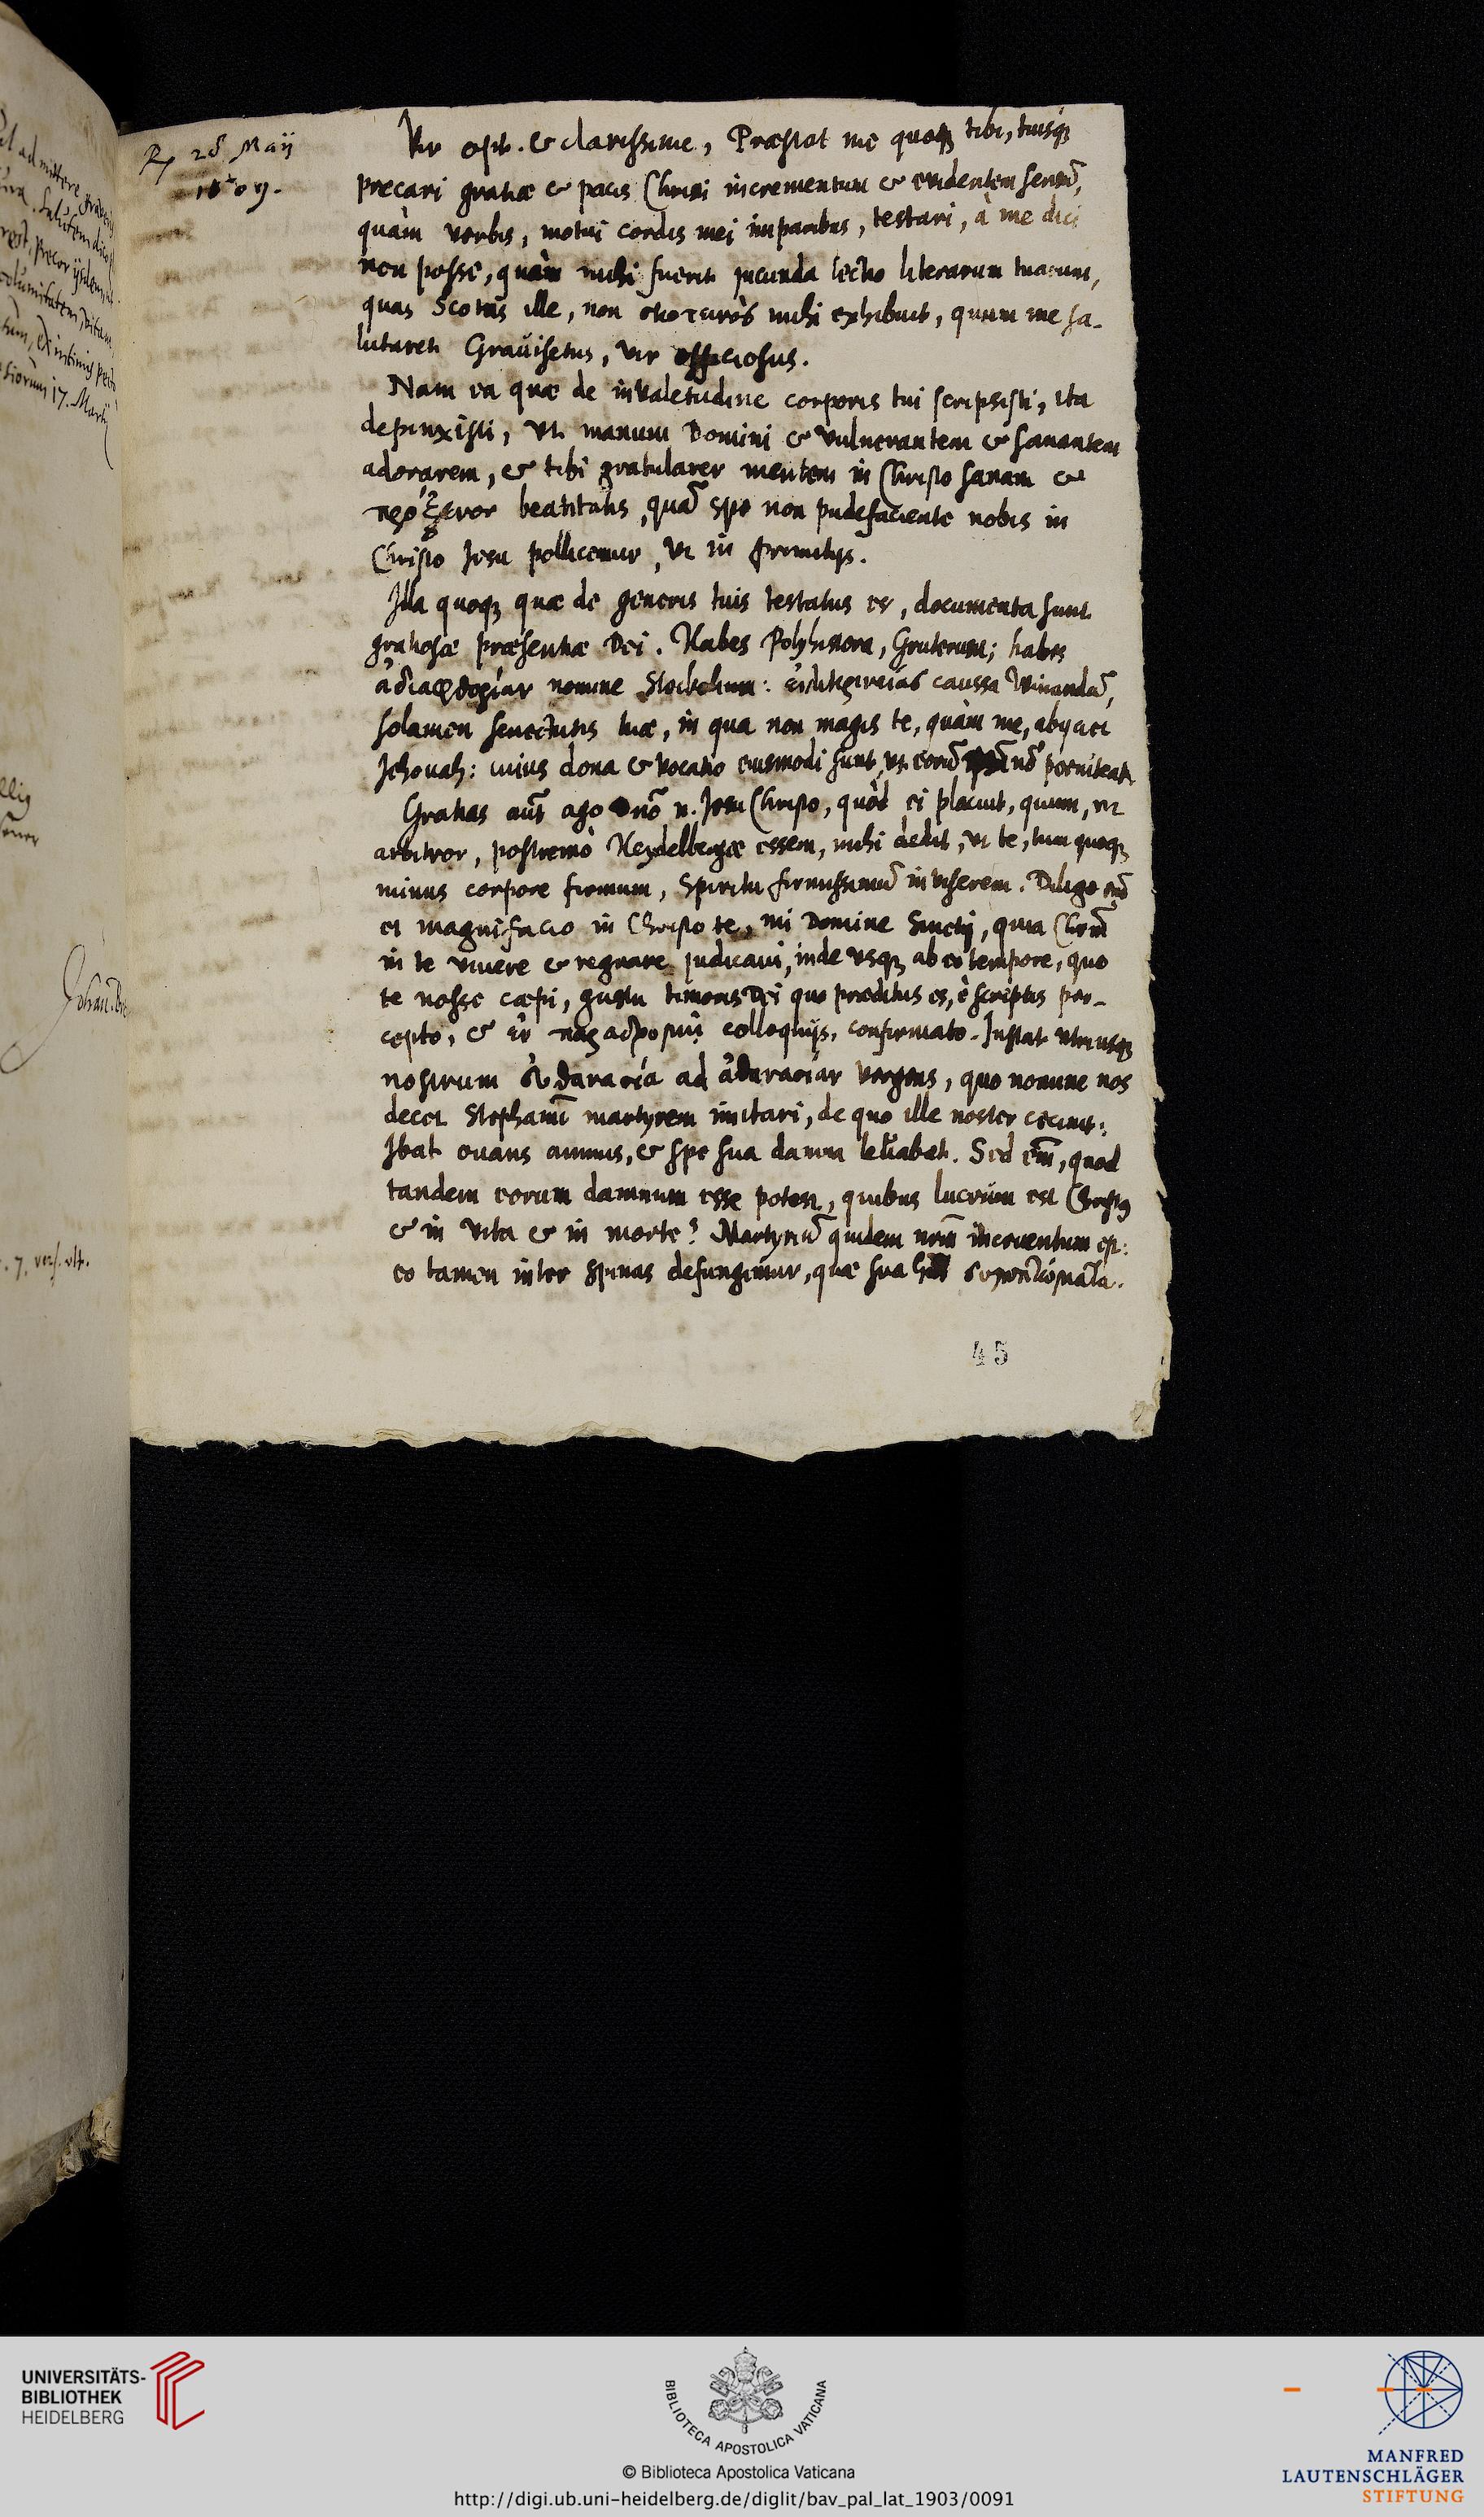 Rx 28 Maij
Vir opt. & clarissime, Præstat me quoqꝫ tibi, tuisqꝫ
precari gratiæ & pacis Christi incrementum & evidentem
quàm verbis, motui cordis mei imparibus, testari, à me dici
non posse, quàm mihi fuerit jucunda lectio literarum tuarum,
quas Scotus ille, non mihi exhibuit, quum me sa-
lutaret Gravisetus, vir officiosus.
Nam ea quæ de invaletudine corporis tui scripsisti, ita
depinxisti, vt manum Domini & vulnerantem & sanantem
adorarem, & tibi gratularer mentem in Christo sanam &
beatitatis, quā spe non pudefaciente nobis in
Christo Jesu pollicemur, vt in primitijs.
Illa quoqꝫ quæ de generis tuis testatus es, documenta sunt
gratiosæ præsentiæ Dei. Habes Polyhistora, Gruterum; habes
nomine caussa
solamen senectutis tuæ, in qua non magis te, quàm me, abijciet
Jehovah: cuius dona & vocatio eiusmodi sunt, vt eorū nō poeniteat.
Gratias aūt ago n. Jesu Christo, quòd ei placuit, quum, vt
arbitror, postremò Heydelbergæ essem, mihi dedit, vt te, tum quoqꝫ
minus corpore firmum, spiritu firmissimū inviserem. Diligo
et magnifacio in Christo te, mi Domine Smetij, quia
in te vivere & regnare judicavi, inde vsqꝫ ab eo tempore, quo
te nosse cæpi, gustu timoris Dei quo præditus es, è scriptis per-
cepto, & colloquijs, confirmato. Instat vtriusqꝫ
nostrum ad vergens, quo nomine nos
decet Stephanū martyrem imitari, de quo ille noster cecinit:
Ibat ovans animus, & spe sua damna levabat. Sed em̄, quod
tandem eorum damnum esse potest, quibus lucrum est Christꝰ
& in vita & in morte? Martyriū quidem incruentum est:
eo tamen inter spinas defungimur, quæ sua
45
UNIVERSITÄTS-
BIBLIOTHEK
HEIDELBERG
BIBLIOTECA APOSTOLICA VATICANA
© Biblioteca Apostolica Vaticana
http://digi.ub.uni-heidelberg.de/diglit/bav_pal_lat_1903/0091
MANFRED
LAUTENSCHLÄGER
STIFTUNG